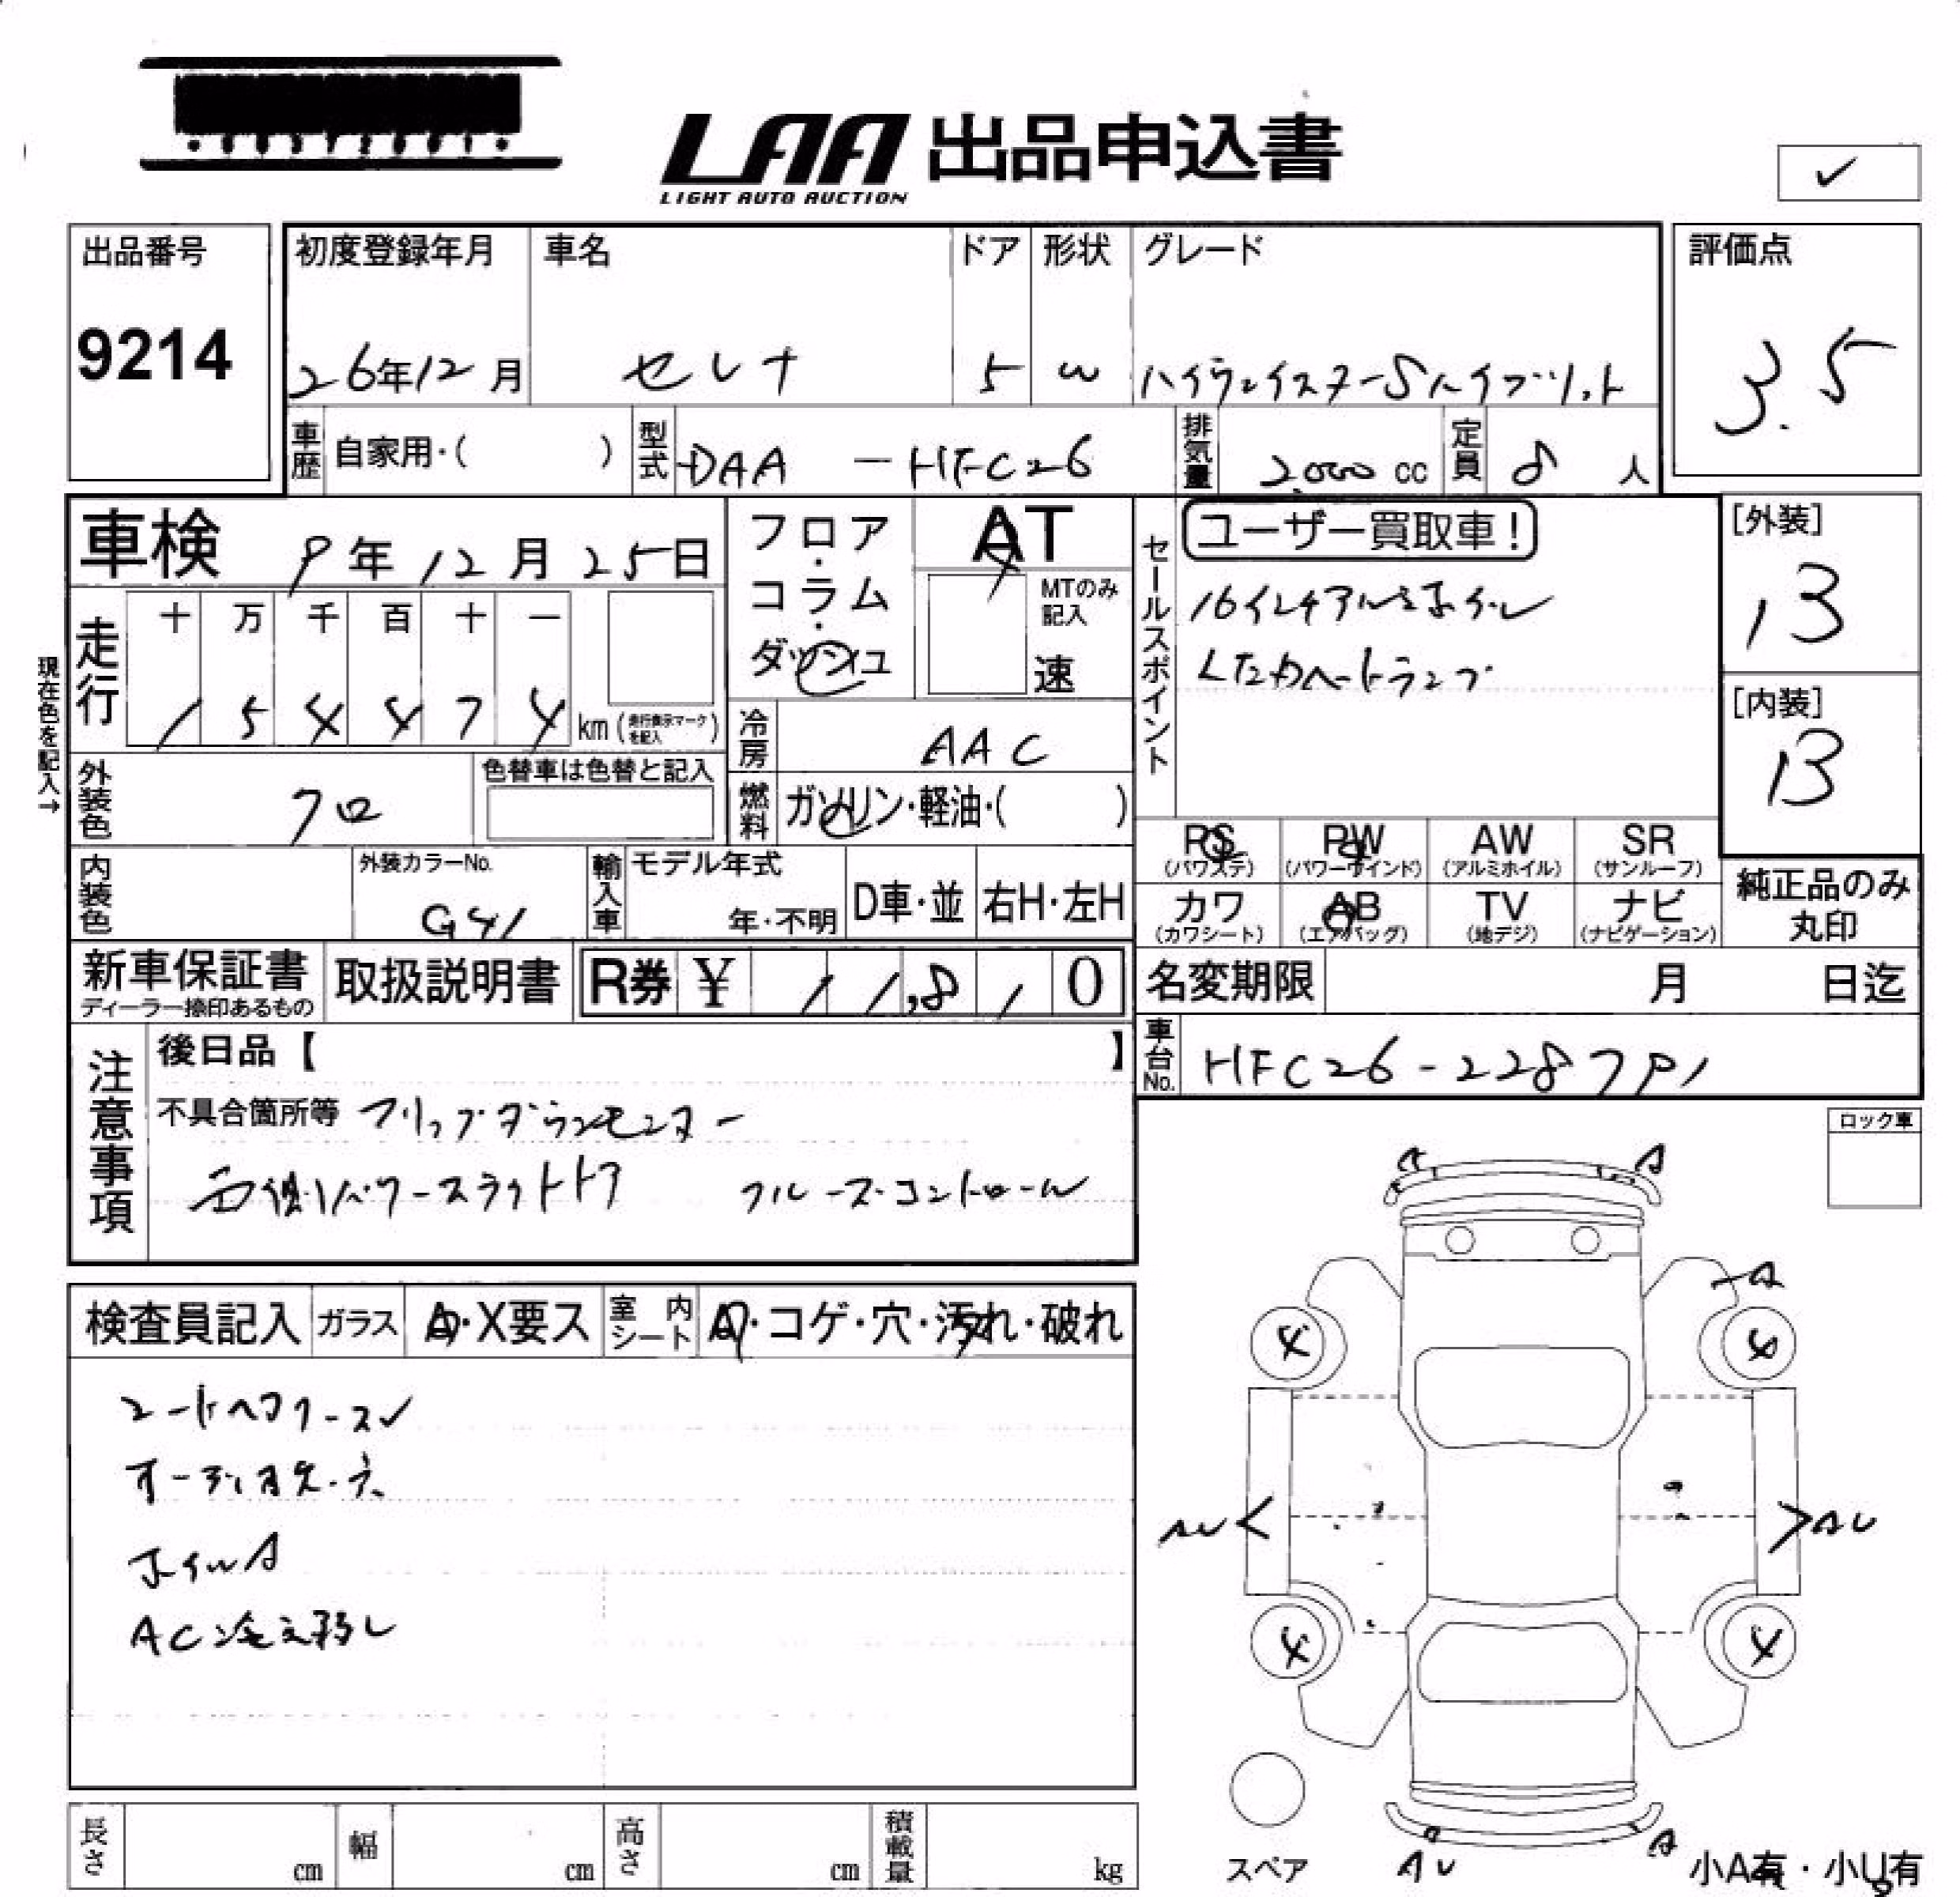 LAA 出品申込書
LIGHT AUTO AUCTION
✓
出品番号
9214
初度登録年月
26年12月
車名
セレナ
ドア
5
形状
W
グレード
ハイウェイスターSハイブリット
評価点
3.5
車歴 自家用・( )
型式 DAA - HFC26
排気量 2,000 cc
定員 8人
車検 9年12月25日
フロア・コラム・ダッシュ
AT
MTのみ記入
速
走行
十 万 千 百 十 一
1 5 4 4 7 4 km (走行表示マークを記入)
現在色を記入→
外装色 クロ
色替車は色替と記入
冷房 AAC
燃料 ガソリン・軽油・( )
内装色
外装カラーNo.
G41
輸入車 モデル年式
年・不明
D車・並
右H・左H
セールスポイント
ユーザー買取車!
16インチアルミホイル
LEDヘートランプ
[外装]
13
[内装]
13
RS (パワステ)
PW (パワーウインド)
AW (アルミホイル)
SR (サンルーフ)
カワ (カワシート)
AB (エアバッグ)
TV (地デジ)
ナビ (ナビゲーション)
純正品のみ丸印
新車保証書
ディーラー捺印あるもの
取扱説明書
R券 ¥ 11,810
名変期限 月 日迄
車台No. HFC26-228791
注意事項
後日品【 】
不具合箇所等 フリップダウンモニター
両側パワースライトドア クルーズコントロール
ロック車
検査員記入
ガラス A・X要ス
室内シート A・コゲ・穴・汚れ・破れ
オーディオ欠・穴
ホイルA
A A
A
4 4
AU< >AU
4 4
スペア
AU A
小A有・小U有
長さ cm
幅 cm
高さ cm
積載量 kg